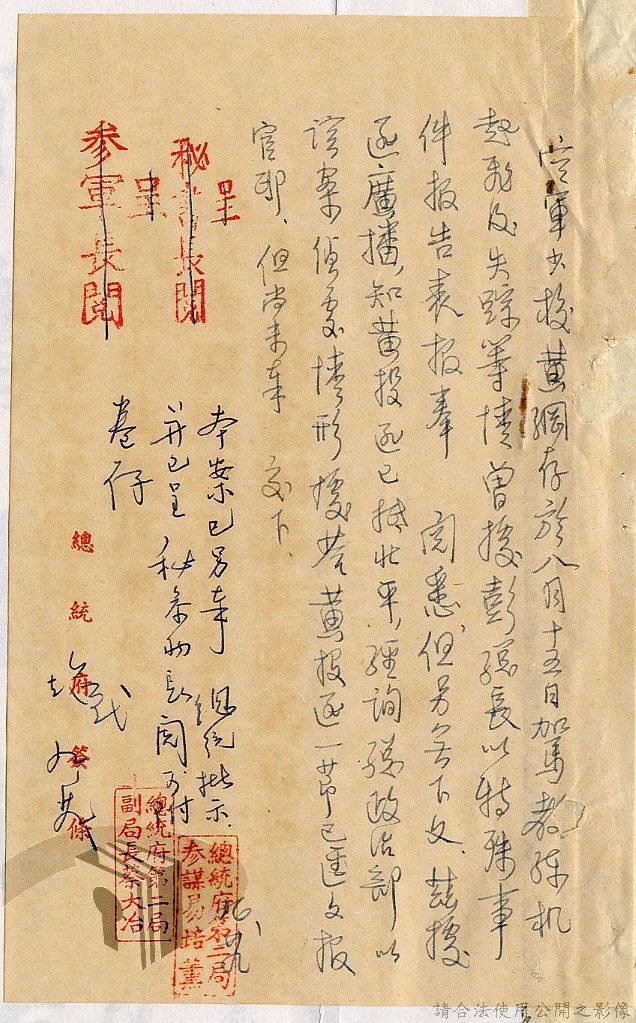 空軍少校黃綱存於八月十五日加駕教練机
起飛後失踪等情曾據彭總長以特殊事
件報告表報奉 閱悉但另無下文、茲據
匪廣播,知黃投匪已抵北平,經詢總政治部以
該案偵處情形據答黃投匪一節已進文報
官邸、但尚未奉 交下、
秘書長閱
呈
參軍長閱
呈
本案已另奉 總統批示、
并已呈 秘參兩長閱可付
卷存
總統府簽條
總統府第二局
參謀易培薰
總統府第二局
副局長蔡大冶
請合法使用公開之影像